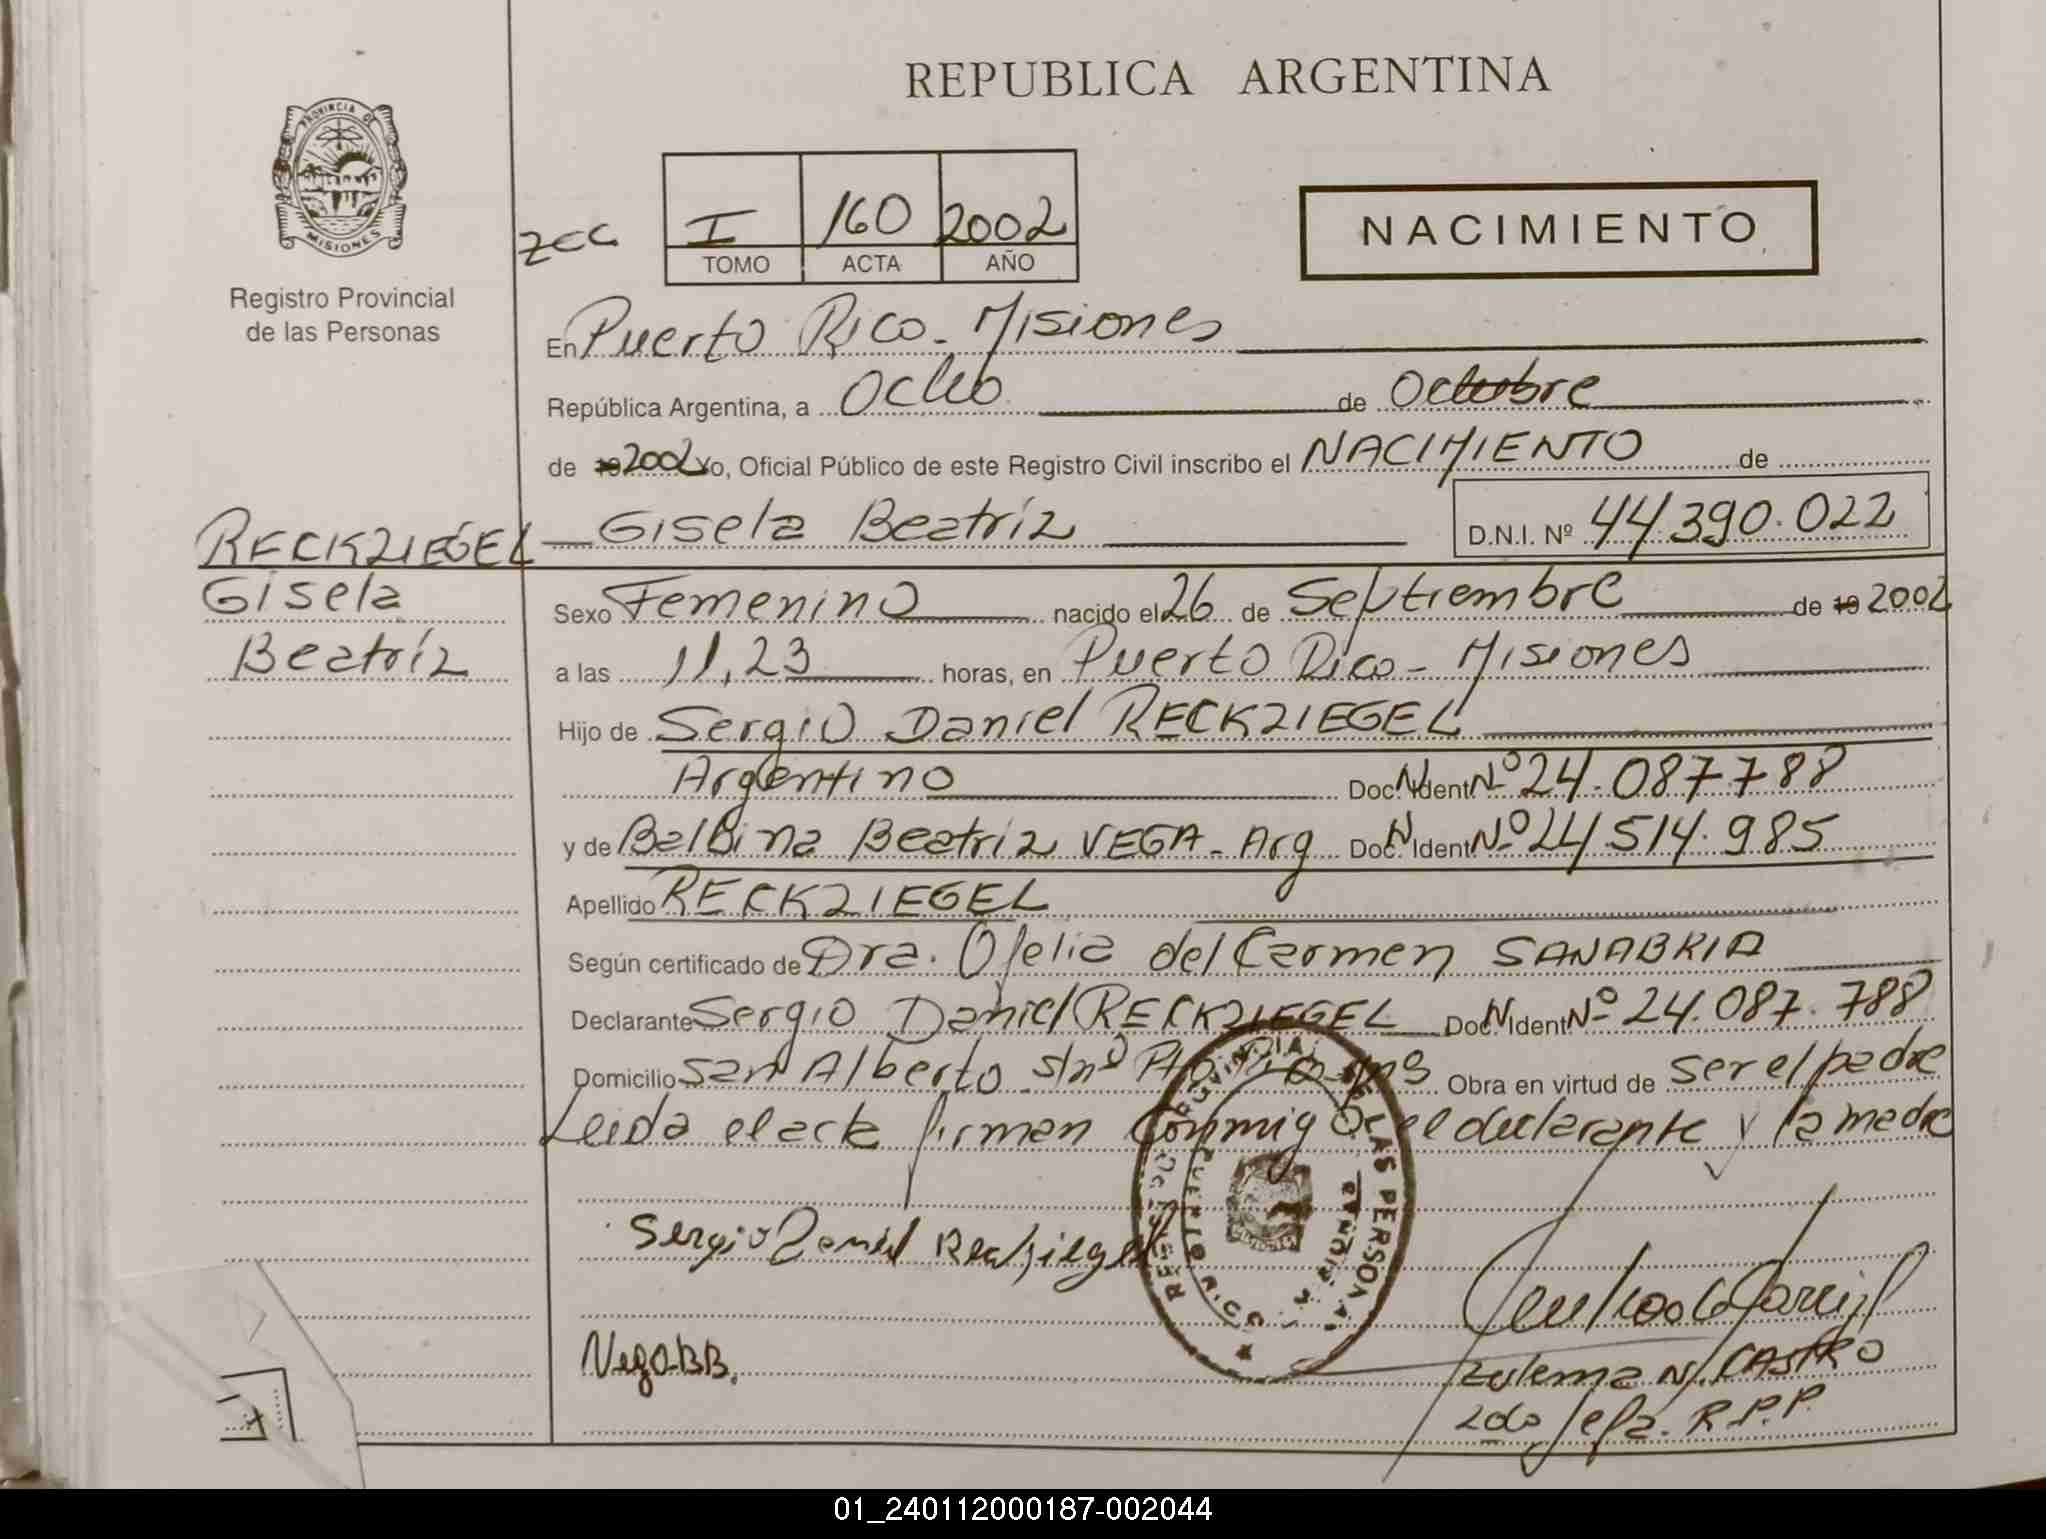 REPUBLICA ARGENTINA
PROVINCIA DE
MISIONES
Registro Provincial
de las Personas
zcc
I 160 2002
TOMO ACTA AÑO
NACIMIENTO
En Puerto Rico - Misiones
República Argentina, a Ocho de Octubre
de 19 2002 Yo, Oficial Público de este Registro Civil inscribo el NACIMIENTO de
RECKZIEGEL Gisela Beatríz D.N.I. Nº 44.390.022
Gisela
Beatríz
Sexo Femenino nacido el 26 de Septiembre de 19 2002
a las 11,23 horas, en Puerto Rico - Misiones
Hijo de Sergio Daniel RECKZIEGEL
Argentino Doc. N. Ident. Nº 24.087.788
y de Balbina Beatriz VEGA - Arg Doc. N. Ident. Nº 24.514.985
Apellido RECKZIEGEL
Según certificado de Dra. Ofelia del Carmen SANABRIA
Declarante Sergio Daniel RECKZIEGEL Doc. N. Ident. Nº 24.087.788
Domicilio San Alberto s/nº Pto Rico Mns Obra en virtud de ser el padre
Leida el acta firman conmigo el declarante y la madre
Sergio Daniel Reckziegel
Vega BB.
Zulema N. CASTRO
2da Jefa. R.P.P.
01_240112000187-002044